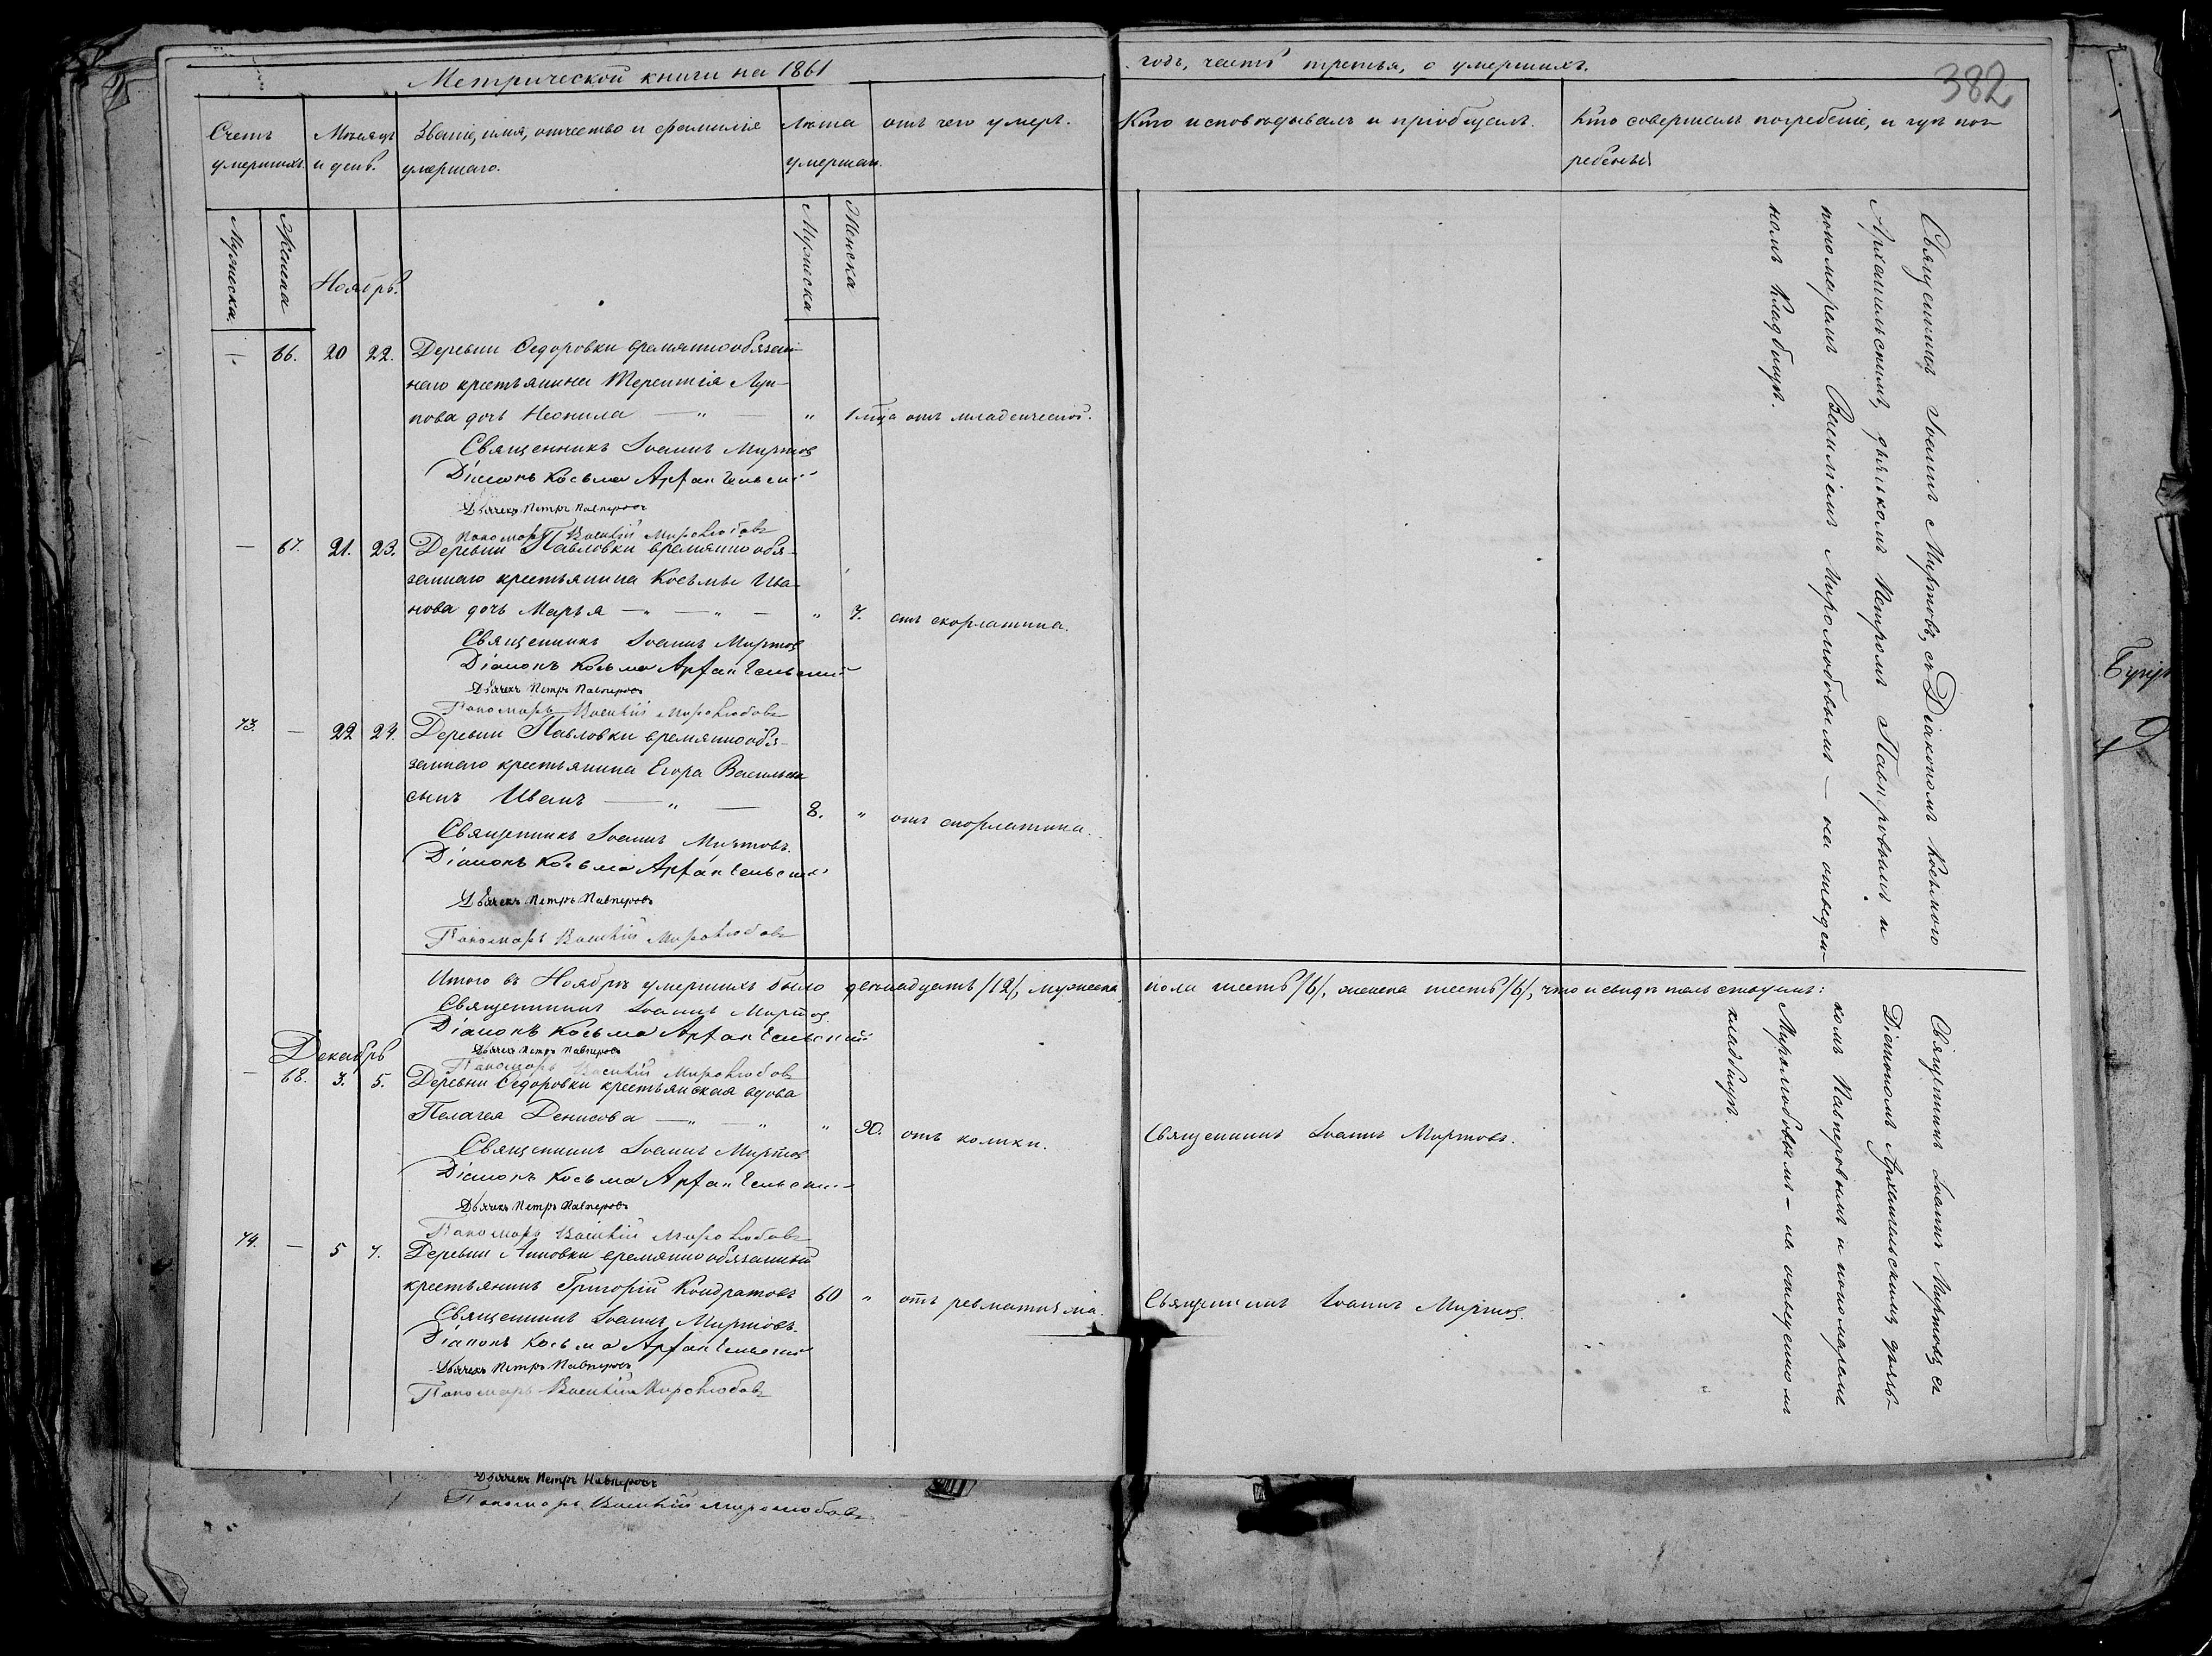 Метрической книги на 1861
годъ, часть третья, о умершихъ.
382
Счетъ
умершихъ.
Мѣсяцъ
и день.
Званіе, имя, отчество и фамилія
умершаго.
Лѣта
умершаго.
отъ чего умеръ.
Кто исповѣдывалъ и пріобщалъ.
Кто совершалъ погребеніе, и гдѣ пог
ребены
Мужеска.
Женска
Мужеска
Женска
Ноябрь.
— 66. 20 22. Деревни Ѳедоровки временнообязан
наго крестьянина Терентія Луп
пова дочь Неонила — " — " 1 мца отъ младенческой.
Священникъ Іоаннъ Миртовъ
Діаконъ Косьма Архангельскій
Дьячекъ Петръ Павперовъ
Пономарь Василій Миролюбовъ
— 67. 21. 23. Деревни Павловки временнообя-
заннаго крестьянина Косьмы Ива-
нова дочь Марья — " — " — " 7. отъ скорлатина.
Священникъ Іоаннъ Миртовъ
Діаконъ Косьма Архангельскій
Дьячекъ Петръ Павперовъ
Пономарь Василій Миролюбовъ
73. — 22 24. Деревни Павловки временнообя-
заннаго крестьянина Егора Васильева
сынъ Иванъ — " — 8. " отъ скорлатина.
Священникъ Іоаннъ Миртовъ.
Діаконъ Косьма Архангельскій
Дьячекъ Петръ Павперовъ
Пономарь Василій Миролюбовъ
Священникъ Іоаннъ Миртовъ, съ Діакономъ Косьмою
Архангельскимъ, дьячкомъ Петромъ Павперовымъ и
пономаремъ Василіемъ Миролюбовымъ — на отведен-
номъ кладбищѣ.
Итого въ Ноябрѣ умершихъ было двенадцать /12/, мужеска пола шесть /6/, женска шесть /6/, что и свидѣтельствуемъ:
Священникъ Іоаннъ Миртовъ
Діаконъ Косьма Архангельскій
Дьячекъ Петръ Павперовъ
Пономарь Василій Миролюбовъ
Декабрь
— 68. 3. 5. Деревни Ѳедоровки крестьянская вдова
Пелагея Денисова — " — " " 90. отъ колики. Священникъ Іоаннъ Миртовъ.
Священникъ Іоаннъ Миртовъ
Діаконъ Косьма Архангельскій
Дьячекъ Петръ Павперовъ
Пономарь Василій Миролюбовъ
74. — 5 7. Деревни Анновки временнообязанный
крестьянинъ Григорій Кондратовъ 60 " отъ ревматизма. Священникъ Іоаннъ Миртовъ.
Священникъ Іоаннъ Миртовъ.
Діаконъ Косьма Архангельскій
Дьячекъ Петръ Павперовъ
Пономарь Василій Миролюбовъ
Священникъ Іоаннъ Миртовъ, съ
Діакономъ Архангельскимъ, дьяч-
комъ Павперовымъ и пономаремъ
Миролюбовымъ — на отведенномъ
кладбищѣ.
Дьячекъ Петръ Павперовъ
Пономарь Василій Миролюбовъ